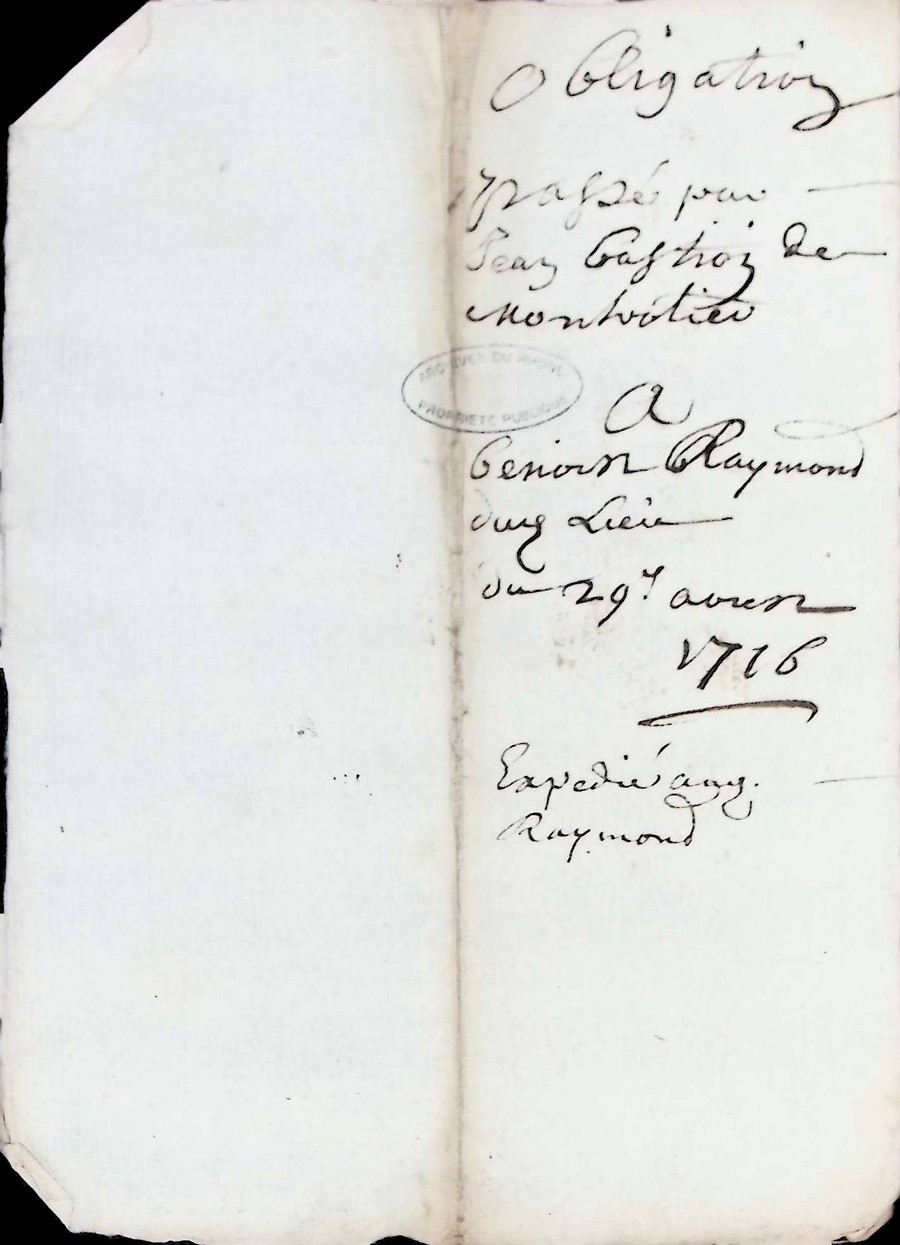 Obligation
passé par
Jean Bastion de
Montrotier
ARCHIVES DU RHONE
PROPRIETE PUBLIQUE
A
benoist Raymond
dud Lieu
du 29e avril
1716
Expedié aud.
Raymond